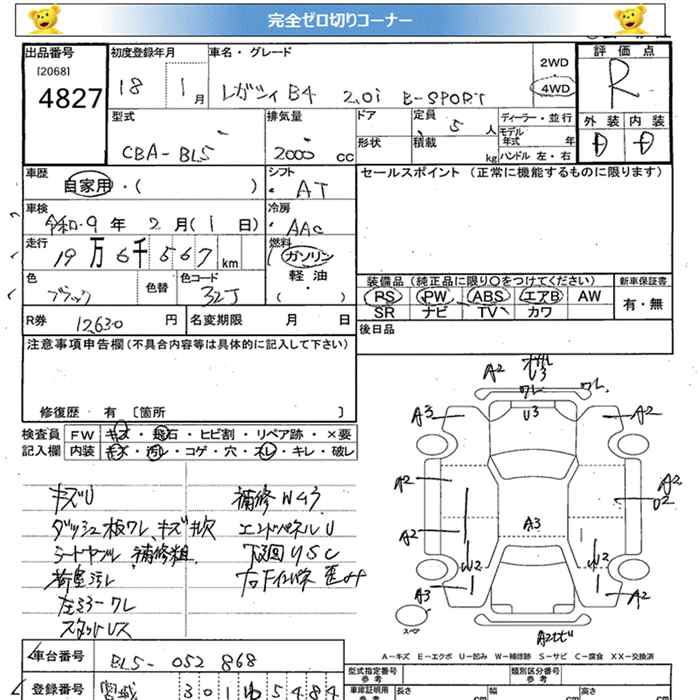 完全ゼロ切りコーナー
出品番号 初度登録年月 車名・グレード 2WD 4WD 評価点
[2068] 4827 18 1月 レガシィ B4 2.0i B-SPORT R
型式 排気量 ドア 定員 5 人 ディーラー・並行 外装 内装
CBA-BL5 2000 cc 形状 積載 kg モデル年式 年 D D
ハンドル 左・右
車歴 シフト セールスポイント (正常に機能するものに限ります)
自家用・( ) AT
車検 冷房
令和 9年 2月(1日) AAC
走行 燃料
19万6千567km ガソリン
色 色替 色コード 軽油
ブラック 32J (・)
装備品 (純正品に限り○をつけてください) 新車保証書
PS PW ABS エアB AW 有・無
SR ナビ TV カワ
R券 12630 円 名変期限 月 日 後日品
注意事項申告欄(不具合内容等は具体的に記入して下さい)
修復歴 有 [箇所 ]
検査員 FW キズ・飛石・ヒビ割・リペア跡・×要
記入欄 内装 キズ・汚レ・コゲ・穴・スレ・キレ・破レ
キズU 補修W43
ダッシュ板ワレ、キズ エンドパネルU
シートヤブレ 補修粗 下廻りSC
荷室汚レ
左ミラーワレ
A2 U3 ワレ ワレ
A3 U3 A2
A2 A2 U2
A2 A3
W2 W2
A3 A2
スペア
A-キズ E-エクボ U-凹み W-補修跡 S-サビ C-腐食 XX-交換済
車台番号 BL5-052868 型式指定番号 参考 類別区分番号 参考
登録番号 宮城 301 ゆ 5484 車庫証明用 参考 長さ cm 幅 cm 高さ cm